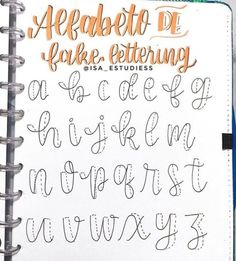 Alfabeto DE
fake lettering
@ISA_ESTUDIESS
a b c d e f g
h i j k l m
n o p q r s t
u v w x y z